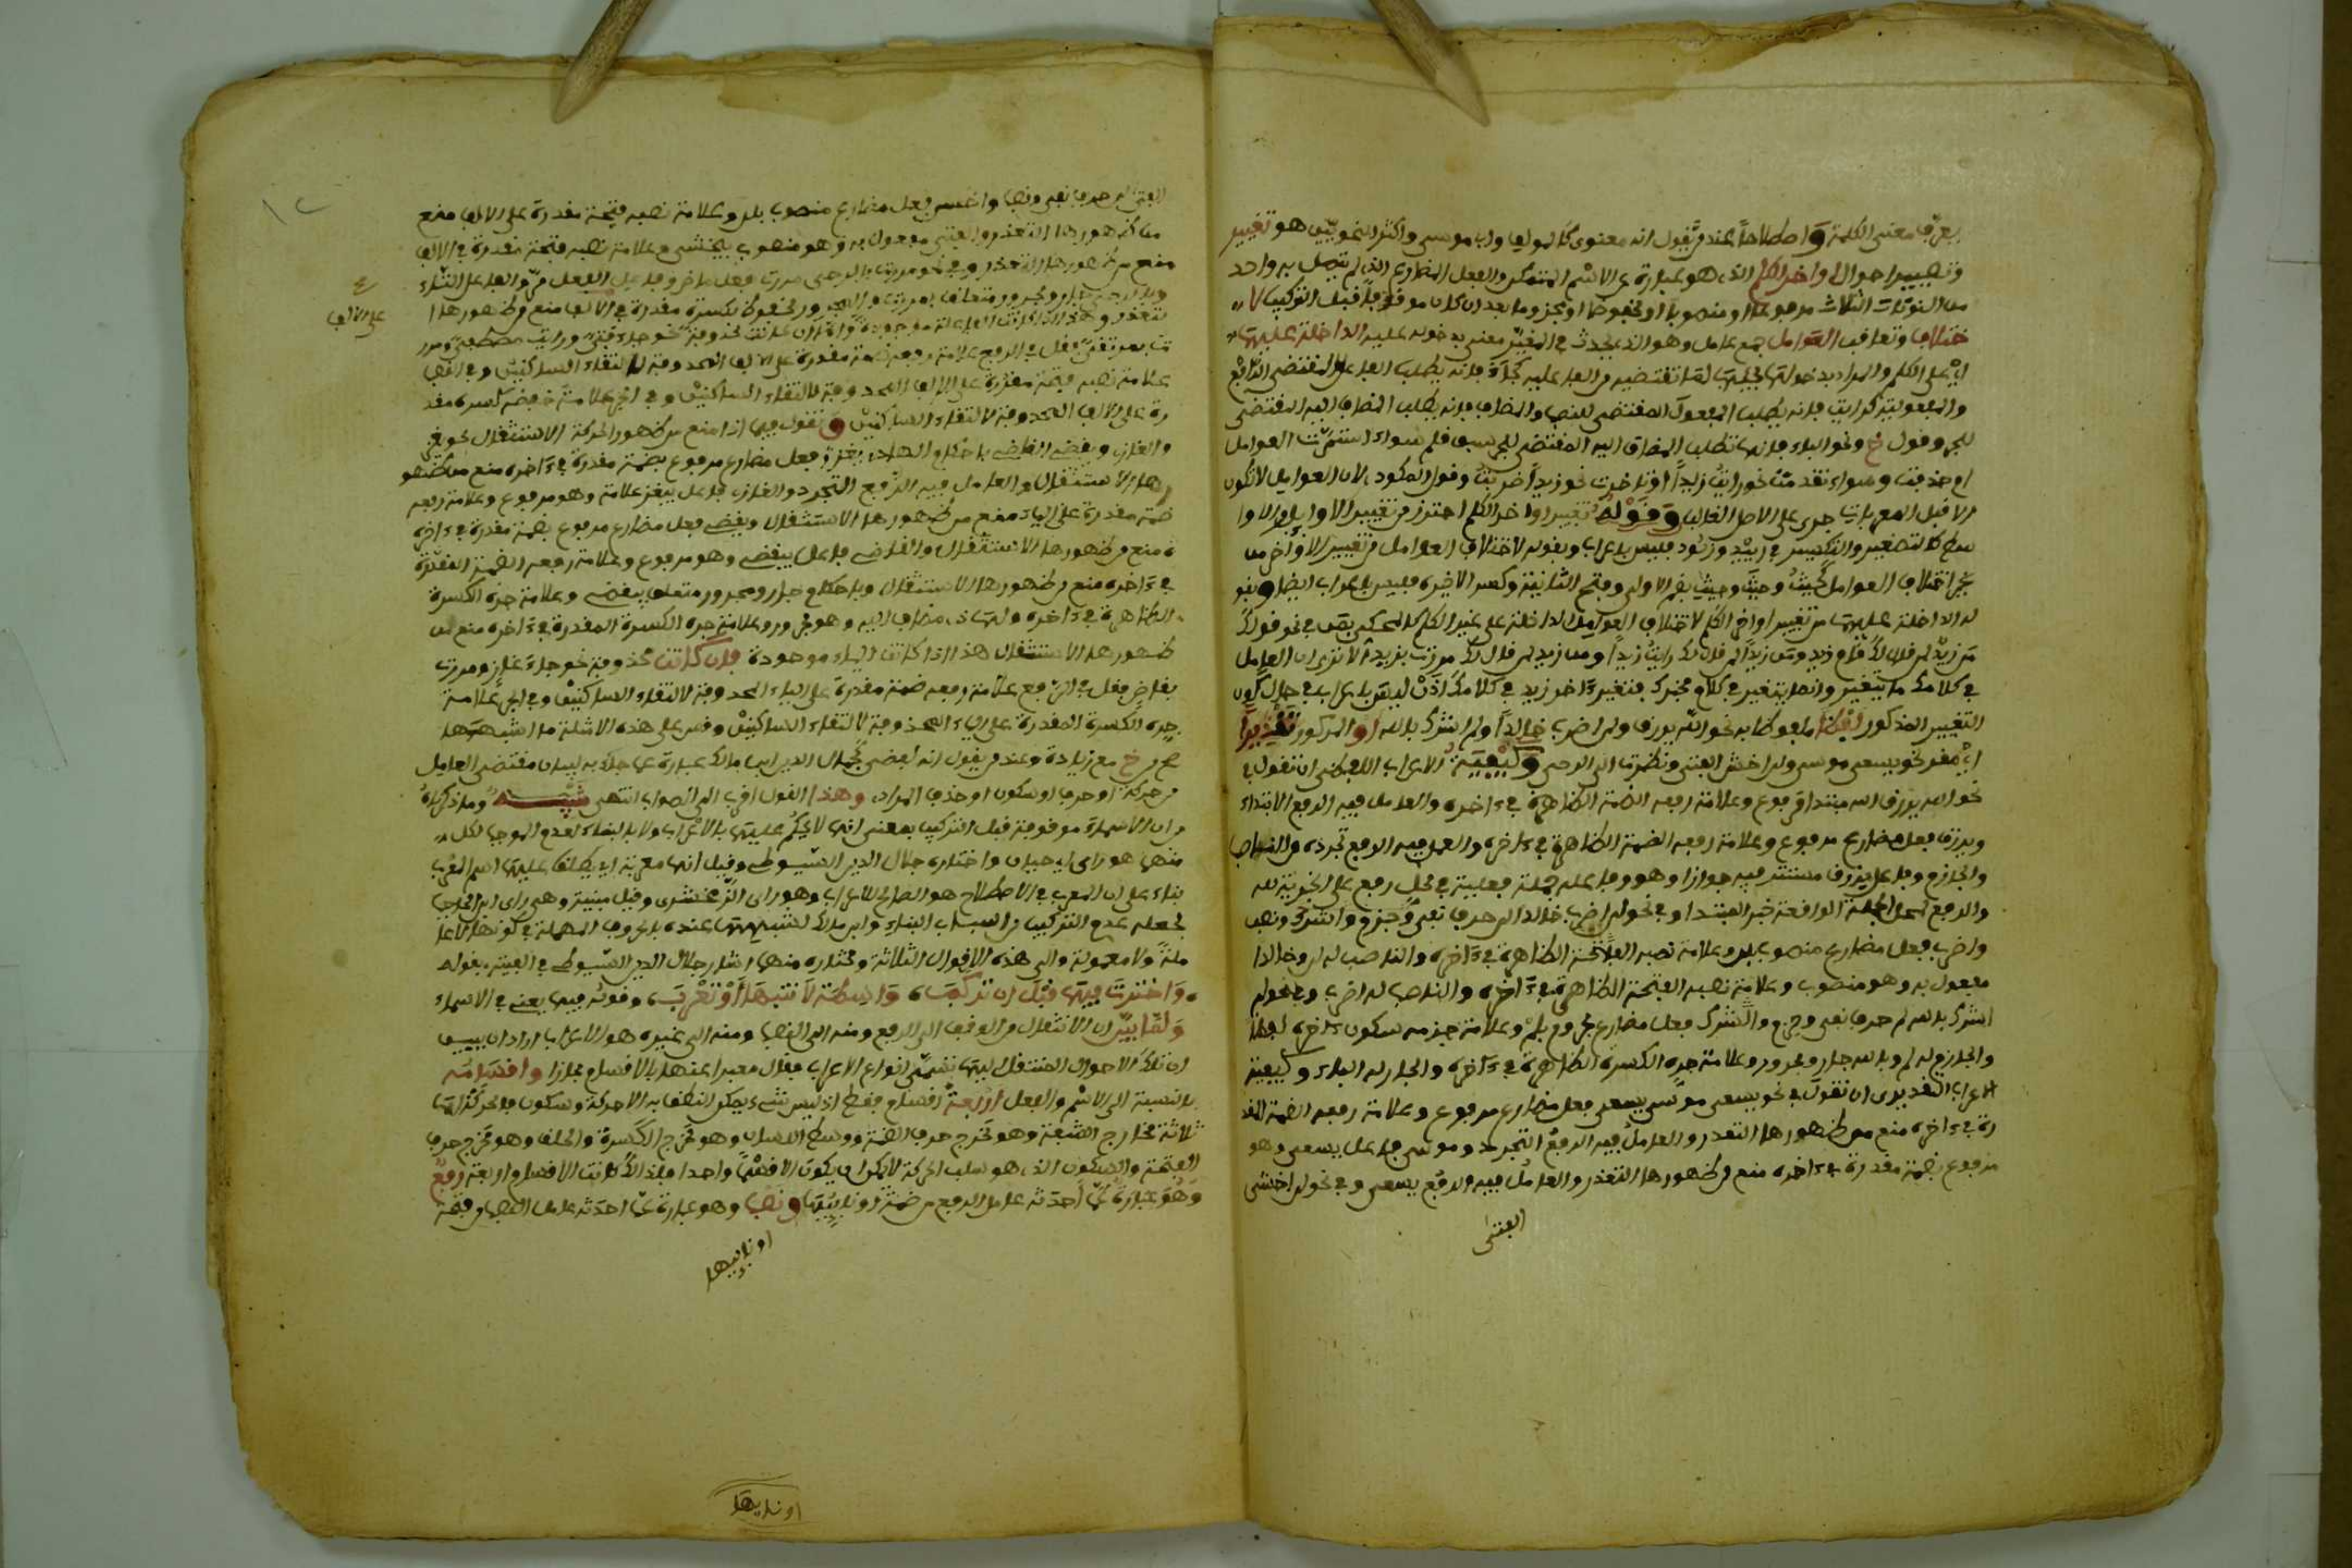 يعرف معنى الكلمة واصطلاحا عند من يقول انه معنوى كالمولف وابي موسى واكثر النحويين هو تغيير
وتصيير احوال اواخر الكلم الذي هو عبارة عن الاسم المتمكن والفعل المضارع الذي لم يتصل به واحد
من النونات الثلاث مرفوعا او منصوبا او مخفوضا او مجزوما بعد ان كان موقوفا قبل التركيب لا
ختلاف وتعاقب العوامل جمع عامل وهو الذي يحدث في المغير معنى بدخوله عليه الداخلة عليها
اي على الكلم والمراد بدخولها مجيئها لما تقتضيه من الفاعلية كجاء فانه يطلب الفاعل المقتضي الرفع
والمفعولية كرايت فانه يطلب المفعول المقتضي للنصب والمضاف فانه يطلب المضاف اليه المقتضي
للجر وقول خ ونحو الباء فانها تطلب المضاف اليه المقتضي للجر سبق قلم سواء استمرت العوامل
ام حذفت وسواء تقدمت نحو رايت زيدا او تاخرت نحو زيدا ضربت وقول المكودي لان العوامل لا تكون
الا قبل المعربات جرى على الاصل الغالب وقوله تغيير اواخر الكلم احترز من تغيير الاوايل والاوا
سط كالتصغير والتكسير في زييد وزيود فليس باعراب وبقوله لاختلاف العوامل من تغيير الاواخر من
غير اختلاف العوامل كحيث وحيث وحيث بضم الاولى وفتح الثانية وكسر الاخيرة فليس باعراب ايضا وبقو
له الداخلة عليها من تغيير اواخر الكلم لاختلاف العوامل الداخلة على غير الكلم كالمحكي بمن في نحو قولك
من زيد لمن قال لك قام زيد ومن زيدا لمن قال لك رايت زيدا ومن زيد لمن قال لك مررت بزيد الا ترى ان العامل
في كلامك ما يتغير وانما يتغير في كلام مخبرك فتغير ءاخر زيد في كلامك اذن ليس باعراب في حال كون
التغيير المذكور لفظا ملفوظا به نحو الله يرزق ولن اضرب خالدا ولم اشرك بالله او المذكور تقديرا
اي مقدر نحو يسعى موسى ولن اخشى الفتى ونظرت الى الرحى وكيفية الاعراب اللفظي ان تقول في
نحو الله يرزق الله مبتدا مرفوع وعلامة رفعه الضمة الظاهرة في ءاخره والعامل فيه الرفع الابتداء
ويرزق فعل مضارع مرفوع وعلامة رفعه الضمة الظاهرة في ءاخره والعامل فيه الرفع تجرده من الناصب
والجازم وفاعل يرزق مستتر فيه جوازا وهو وفاعله جملة فعلية في محل رفع على الخبرية لله
والرفع لمحل الجملة الواقعة خبر المبتدا وفي نحو لن اضرب خالدا لن حرف نفي ونصب
واضرب فعل مضارع منصوب بلن وعلامة نصبه الفتحة الظاهرة في ءاخره والناصب له لن وخالدا
مفعول به وهو منصوب وعلامة نصبه الفتحة الظاهرة في ءاخره والناصب له اضرب وفي نحو لم
اشرك بالله لم حرف نفي وجزم واشرك فعل مضارع مجزوم بلم وعلامة جزمه سكون ءاخره لفظا
والجازم له لم وبالله جار ومجرور وعلامة جره الكسرة الظاهرة في ءاخره والجار له الباء وكيفية
الاعراب التقديرى ان تقول في نحو يسعى موسى يسعى فعل مضارع مرفوع وعلامة رفعه الضمة المقد
رة في ءاخره منع من ظهورها التعذر والعامل فيه الرفع التجرد وموسى فاعل يسعى وهو
مرفوع بضمة مقدرة في ءاخره منع من ظهورها التعذر والعامل فيه الرفع يسعى وفي نحو لن اخشى
الفتى
الفتى لن حرف نفي ونصب واخشى فعل مضارع منصوب بلن وعلامة نصبه فتحة مقدرة على الالف منع
من ظهورها التعذر والفتى مفعول به وهو منصوب بيخشى وعلامة نصبه فتحة مقدرة في الالف
منع من ظهورها التعذر وفي نحو مررت بالرحى مررت فعل ماض وفاعل الفعل مر والفاعل التاء
وبالرحى جار ومجرور متعلق بمررت والمجرور مخفوظ بكسرة مقدرة في الالف منع من ظهورها ا
على الالف
لتعذر وهذا اذا كانت الف العلة موجودة واما ان كانت محذوفة نحو جاء فتى ورايت مصطفى ومرر
ت بمرتضى فقل في الرفع علامة رفعه ضمة مقدرة على الالف المحذوفة لالتقاء الساكنين وفي النصب
علامة نصبه فتحة مقدرة على الالف المحذوفة لالتقاء الساكنين وفي الجر علامة خفضه كسرة مقد
رة على الالف المحذوفة لالتقاء الساكنين وتقول فيما اذا منع من ظهور الحركة الاستثقال نحو يغز
والغازي ويقضي القاضي باحكام الهادي يغز فعل مضارع مرفوع بضمة مقدرة في ءاخره منع من ظهو
رها الاستثقال والعامل فيه الرفع التجرد والغازي فاعل يغز وهو مرفوع وعلامة رفعه
ضمة مقدرة على الياء منع من ظهورها الاستثقال ويقضي فعل مضارع مرفوع بضمة مقدرة في ءاخر
ه منع من ظهورها الاستثقال والقاضي فاعل يقضي وهو مرفوع وعلامة رفعه الضمة المقدرة
في ءاخره منع من ظهورها الاستثقال وباحكام جار ومجرور متعلق بيقضي وعلامة جره الكسرة
الظاهرة في ءاخره والهادي مضاف اليه وهو مجرور وعلامة جره الكسرة المقدرة في ءاخره منع من
ظهورها الاستثقال هذا اذا كانت الياء موجودة فان كانت محذوفة نحو جاء غاز ومررت
بقاض فقل في الرفع علامة رفعه ضمة مقدرة على الياء المحذوفة لالتقاء الساكنين وفي الجر علامة
جره الكسرة المقدرة على الياء المحذوفة لالتقاء الساكنين وقس على هذه الامثلة ما اشبهها
صح من خ مع زيادة وعند من يقول انه لفظي كجمال الدين ابن مالك عبارة عما جيء به لبيان مقتضى العامل
من حركة او حرف او سكون او حذف المراد وهذا القول اقرب الى الصواب انتهى تنبيه وما ذكرناه
من ان الاسماء موقوفة قبل التركيب بمعنى انها لا يحكم عليها بالاعراب ولا بالبناء لعدم الموجب لكل
منهما هو راى ابي حيان واختاره جلال الدين السيوطي وقيل انها معربة اي يطلق عليها اسم المعرب
بناء على ان المعرب في الاصطلاح هو الصالح للاعراب وهو راى الزمخشرى وقيل مبنية وهي راى ابن الحاجب
لجعله عدم التركيب من اسباب البناء وابن مالك لشبهها عنده بالحروف المهملة في كونها لا عا
ملة ولا معمولة والى هذه الاقوال الثلاثة ومختاره منها اشار جلال الدين السيوطي في الفيته بقوله
واخترت فيها قبل ان تركبا واسطة لا تبنها او تعربا وقوله فيها يعني في الاسماء
ولما بين ان الانتقال من الوقف الى الرفع ومنه الى النصب ومنه الى غيره هو الاعراب اراد ان يبين
ان تلك الاحوال المنتقل اليها تسمى انواع الاعراب فقال معبرا عنها بالاقسام مجازا واقسامه
بالنسبة الى الاسم والفعل اربعة اقسام فقط اذ ليس شيء يمكن النطق به الا حركة وسكون فالحركة لها
ثلاثة مخارج الشفة وهو مخرج حرف الضمة ووسط اللسان وهو مخرج الكسرة والحلق وهو مخرج حرف
الفتحة والسكون الذي هو سلب الحركة لا يمكن ان يكون الا قسما واحدا فلذلك كانت الاقسام اربعة رفع
وهو عبارة عما احدثه عامل الرفع من ضمة او نايبها ونصب وهو عبارة عما احدثه عامل النصب من فتحة
او نايبها
او نايبها